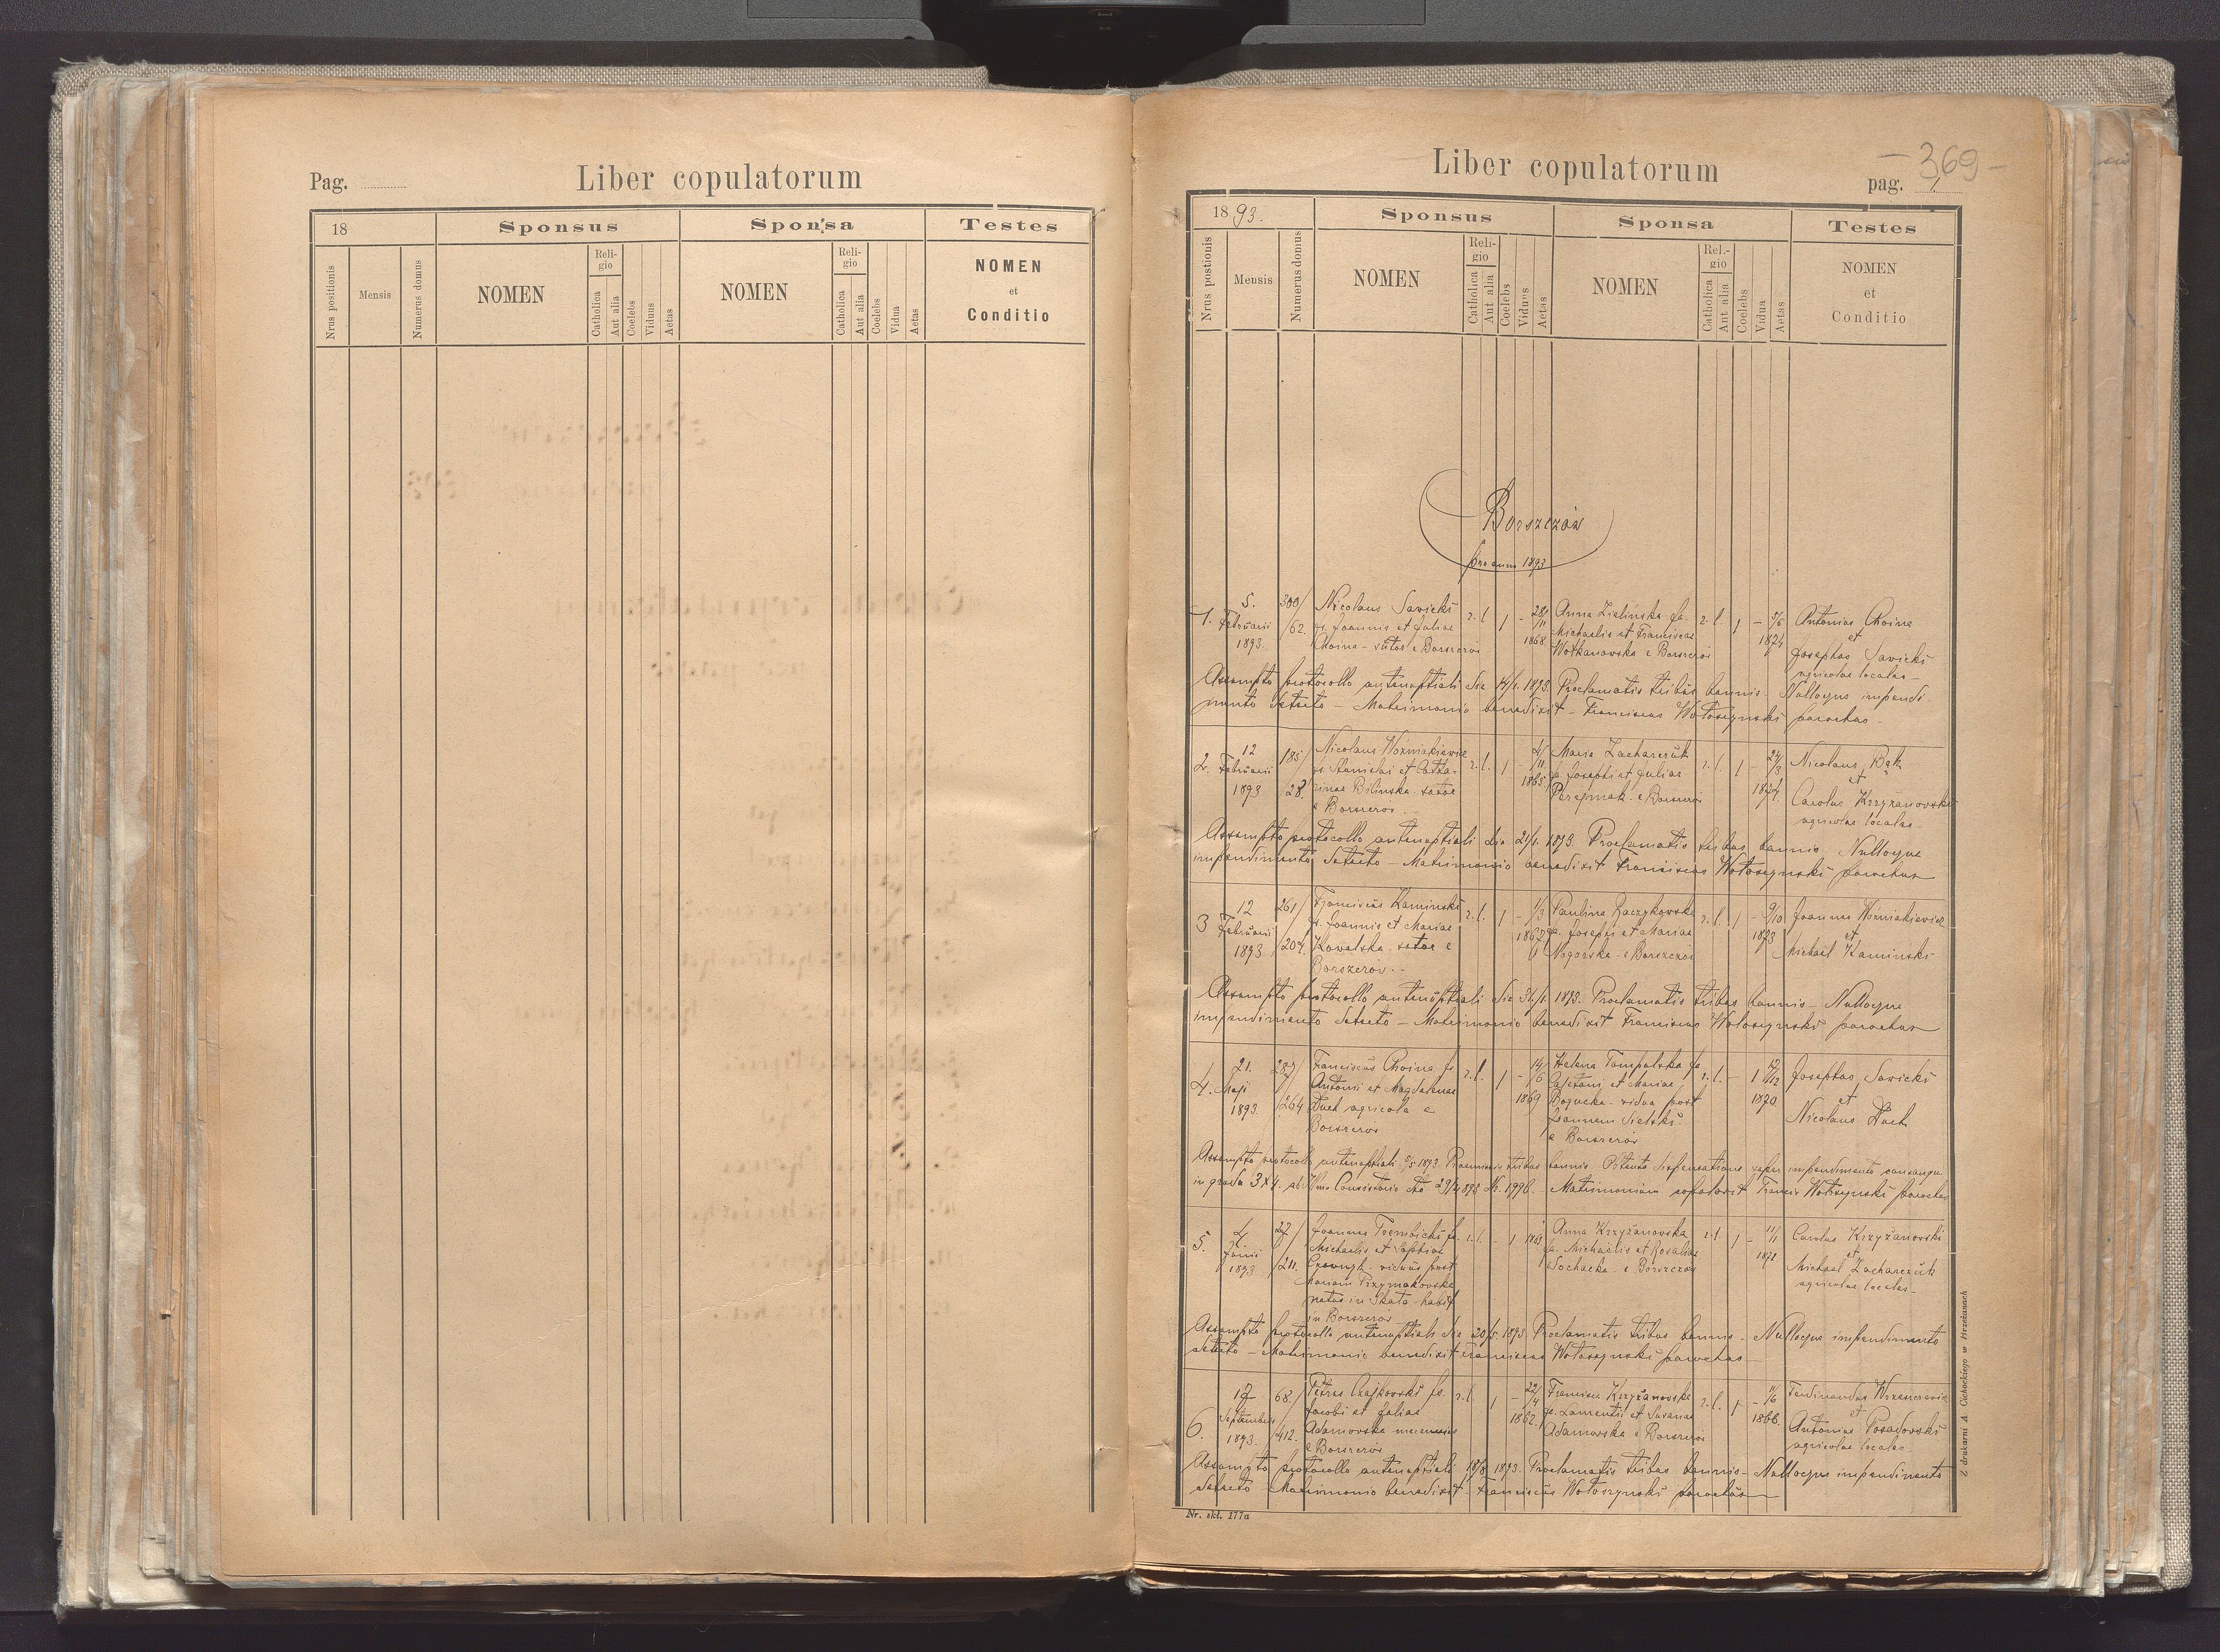 Pag.
Liber copulatorum
18
Sponsus
Sponsa
Testes
Nrus positionis
Mensis
Numerus domus
NOMEN
Religio
Catholica
Aut alia
Coelebs
Viduus
Aetas
NOMEN
Religio
Catholica
Aut alia
Coelebs
Vidua
Aetas
NOMEN
et
Conditio
Liber copulatorum
- 369 -
pag. 1.
1893.
Sponsus
Sponsa
Testes
Nrus postionis
Mensis
Numerus domus
NOMEN
Reli-
gio
Catholica
Aut alia
Coelebs
Viduus
Aetas
NOMEN
Rel.-
gio
Catholica
Aut alia
Coelebs
Vidua
Aetas
NOMEN
et
Conditio
Borszczów
pro anno 1893
1.
5.
Februarii
1893.
300/
/62.
Nicolaus Sawicki
fs. Joannis et Juliae
Choina - sutor e Borszczów
r. l. 1 - 28/11
1868.
Anna Zielinska fa.
Michaelis et Franciscae
e Borszczów
r. l. 1 - 5/6
1874
Antonius Choina
et
Josephus Sawicki
agricolae locales -
Assumpto protocollo antenuptiali die 14/1. 1893. Proclamatis tribus bannis - Nulloque impendi
mento detecto - Matrimonio benedixit - Franciscus Wołoszynski parochus -
2.
12
Februarii
1893
185/
28.
Nicolaus Woźniakiewicz
fs. Stanislai et Catha-
rinae Bilinska - sator
e Borszczów
r. l. 1 - 4/11
1865.
Maria Zacharczuk
fa. Josephi et Juliae
Perejmak - e Borszczów
r. l. 1 - 24/3
1874.
Nicolaus Bąk
et
Carolus Krzyżanowski
agricolae locales -
Assumpto protocollo antenuptiali die 21/1. 1893. Proclamatis tribus bannis Nulloque
impendimento detecto - Matrimonio benedixit Franciscus Wołoszynski parochus
3
12
Februarii
1893
261/
/204.
Franciscus Kaminski
fs. Joannis et Mariae
Kowalska - sator e
Borszczów. -
r. l. 1 - 11/3
1867
Paulina Raczykowska
fa. Josephi et Mariae
Nogorska - e Borszczów
r. l. 1 - 9/10
1873
Joannes Woźniakiewicz
et
Michael Kaminski
Assumpto protocollo antenuptiali die 31/1. 1893. Proclamatis tribus bannis - Nulloque
impendimento detecto - Matrimonio benedixit Franciscus Wołoszynski parochus
4.
21.
Maji
1893.
287/
/264
Franciscus Choina fs.
Antonii et Magdalenae
Duch agricola e
Borszczów
r. l. 1 - 14/6
1869
Helena Tompalska fa.
Cajetani et Mariae
Bogucka - vidua post
Joannem Sielski
e Borszczów
r. l. - 1
1870
Josephus Sawicki
et
Nicolaus Duch
Assumpto protocollo antenuptiali 5/5 1893 Praemissis tribus bannis Obtenta dispensatione super impendimento consangu.
in gradu 3 x 4. ab Consistorio dto 29/4 893 N. 1996. - Matrimonium copulavit Francis Wołoszynski parochus
5.
4.
Junii
1893
27/
/211.
Joannes Trembicki fs.
Michaelis et Sophiae
viduus post
Mariam Przymakowska
natus in Skała - habit
in Borszczów
r. l. - 1 1863
Anna Krzyżanowska
fa. Michaelis et Rosaliae
Sochacka - e Borszczów
r. l. 1 - 11/11
1871
Carolus Krzyżanowski
et
Michael Zacharczuk
agricolae locales -
Assumpto protocollo antenuptiali die 20/5. 1893 Proclamatis tribus bannis - Nulloque impendimento
detecto - Matrimonio benedixit Franciscus Wołoszynski parochus -
6.
17
Septembris
1893.
68./
/412.
Petrus Czajkowski fs.
Jacobi et Juliae
Adamowska
e Borszczów
r. l. 1 - 22/4
1862.
Francisca Krzyżanowska
fa. Laurentii et Susanae
Adamowska e Borszczów
r. l. 1 - 11/6
1866.
Ferdinandus
et
Antonius Posadowski
agricolae locales -
Assumpto protocollo antenuptiali 18/8 1893. Proclamatis tribus bannis - Nulloque impendimento
detecto - Matrimonio benedixit - Franciscus Wołoszynski parochus
Nr. skł. 177a
Z drukarni A. Cichockiego w Brzeżanach